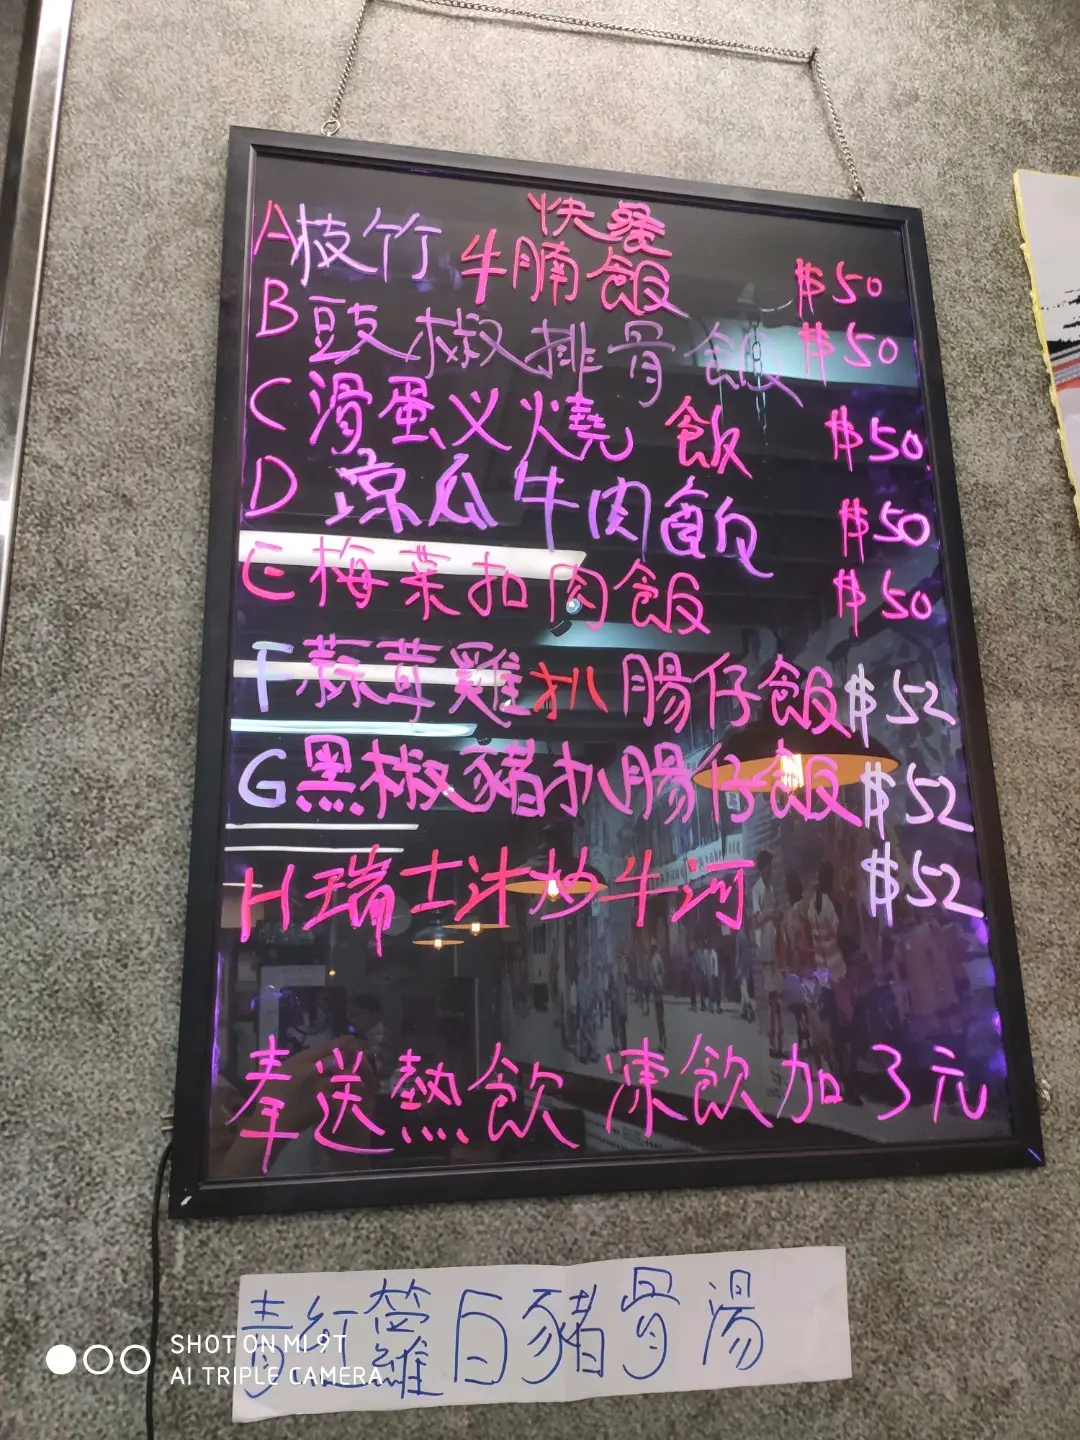 快餐
A枝竹牛腩飯 $50
B豉椒排骨飯 $50
C滑蛋义燒飯 $50
D凉瓜牛肉飯 $50
E梅菜扣肉飯 $50
F蒜茸雞扒腸仔飯 $52
G黑椒豬扒腸仔飯 $52
H瑞士汁炒牛河 $52
奉送熱飲 凍飲加3元
青紅蘿白豬骨湯
SHOT ON MI 9T
AI TRIPLE CAMERA